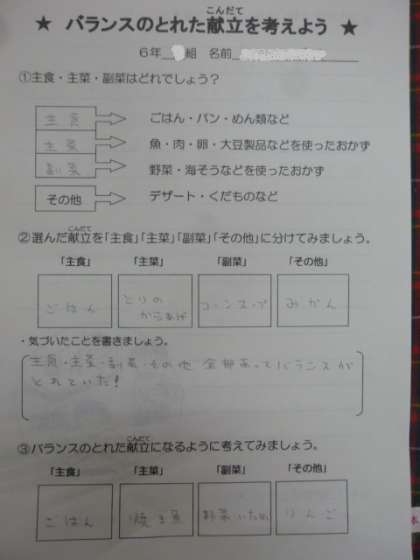 ★ バランスのとれた献立を考えよう ★
こんだて
6年 組 名前
①主食・主菜・副菜はどれでしょう?
主食 ごはん・パン・めん類など
主菜 魚・肉・卵・大豆製品などを使ったおかず
副菜 野菜・海そうなどを使ったおかず
その他 デザート・くだものなど
こんだて
②選んだ献立を「主食」「主菜」「副菜」「その他」に分けてみましょう。
「主食」 「主菜」 「副菜」 「その他」
ごはん とりの からあげ コーンスープ みかん
・気づいたことを書きましょう。
主食・主菜・副菜・その他 全部あってバランスが
とれていた!
こんだて
③バランスのとれた献立になるように考えてみましょう。
「主食」 「主菜」 「副菜」 「その他」
ごはん 焼き魚 野菜いため りんご